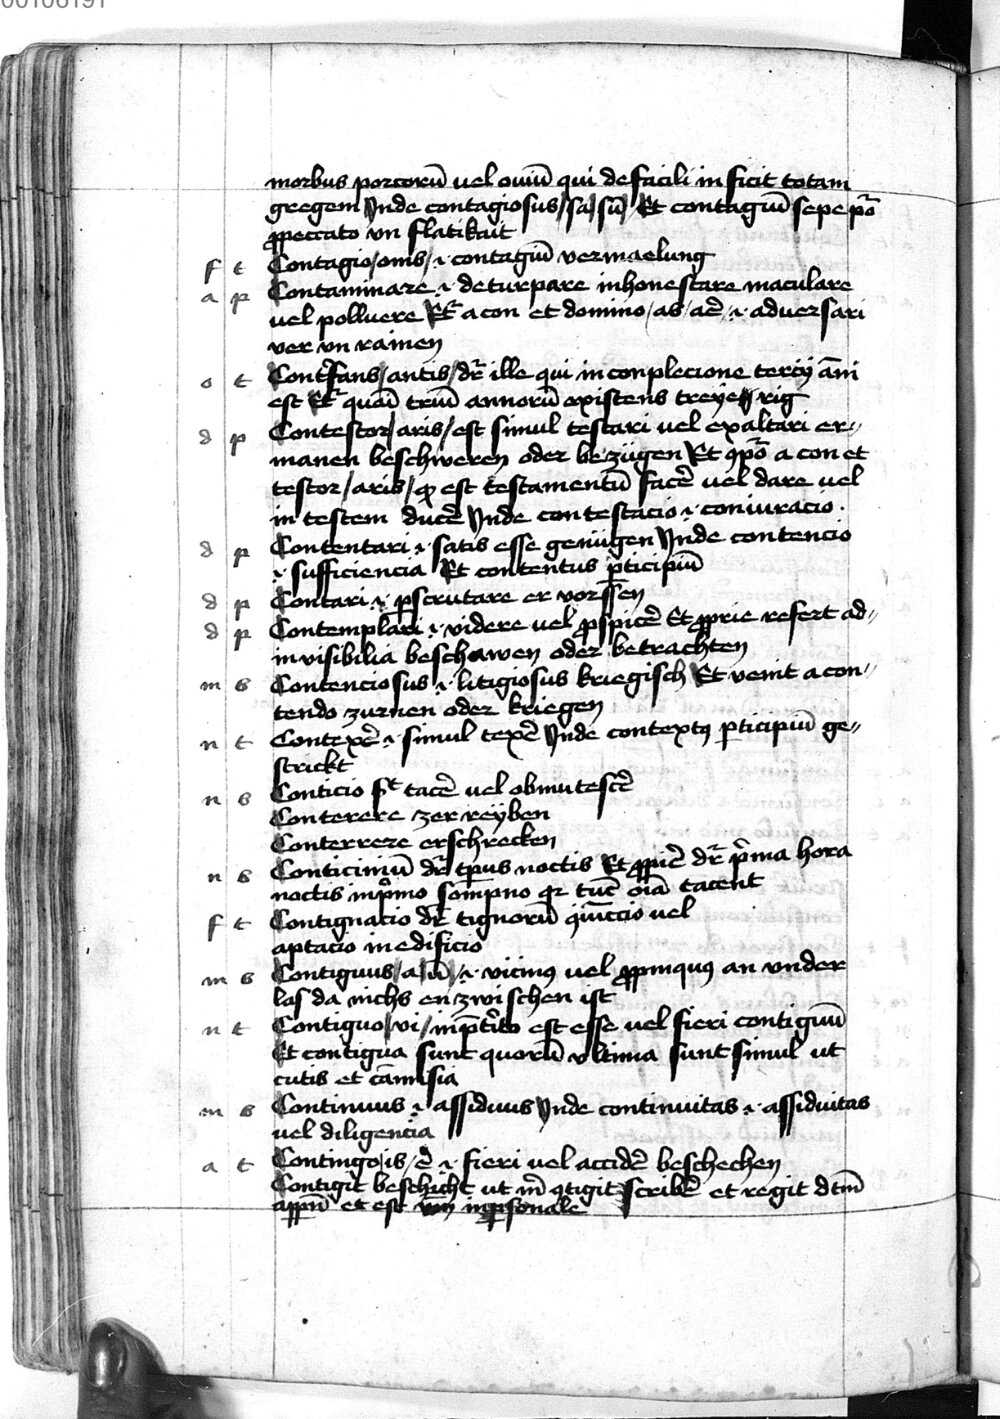 00106191
morbus porcorū vel ouiū qui de facili in ficit totam
gregem Jnde contagiosus /sa/ sū / Et contagiū sepe pō
ꝓpeccato vn flatikait
f t Contagio /onis/ .i. contagiū vermaelung
a p Contaminare .i. deturpare inhonestare maculare
vel polluere Et̄ a con et domino /as/ aē .i. adversari
ver vn rainen
o t /antis/ dr̄ ille qui in conplecione tercij āni
est trium annorū existens
d p Contestor /aris/ est simul testari vel exaltari er-
manen beschweren oder bezügen Et a con et
testor /aris/ est testamentū facē vel dare vel
in testem ducē Jnde contestacio .i. coniuracio .
d p Contentari .i. satis esse genügen Jnde contencio
.i. sufficiencia Et contentus ꝑticipiū
d p Contari .i. ꝑscrutare er vorssen
d p Contemplari .i. videre vel ꝓspicē Et ꝓprie refert ad-
invisibilia beschawen oder betrachten
m b Contenciosus .i. litigiosus kriegisch Et venit a con-
tendo zurnen oder kriegen
n t Contexē .i. simul texē Jnde contextꝰ ꝑticipiū ge-
strickt
n b Conticio tacē vel obmutescē
Conterere zer reyben
Conterrere erschrecken
n b Conticiniū dr̄ tp̄us noctis Et dr̄ pͥma hora
noctis in pͥmo sompno qꝛ tūc oīa tacent
f t Contignacio dr̄ tignorū vel
aptacio in edificio
m b Contiguus /a/ ū/ .i. vicinꝰ vel ꝓpinquꝰ an vnder
las da nichs enzwischen ist
n t Contiguo /vi/ est esse vel fieri contiguū
Et contigua sunt quorū vltima sunt simul ut
cutis et camisia
m b Continuus .i. assiduus Jnde continuitas .i. assiduitas
vel diligencia
a t Contingo /is/ ē .i. fieri vel accidē beschechen
Contigit beschicht ut m̄ ꝯtigit scribē et regit dtm̄
et est inpersonale